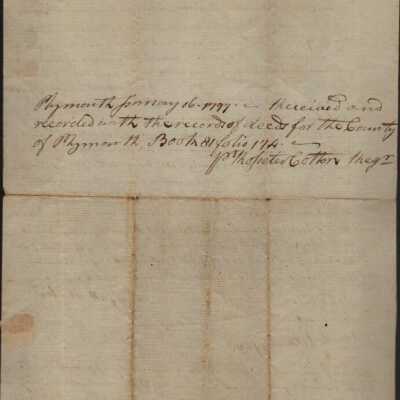 Plymouth January 16. 1797. Received and
recorded with the records of deeds for the County
of Plymouth, Book 81 folio 174.
pr Rossiter Cotton Regr